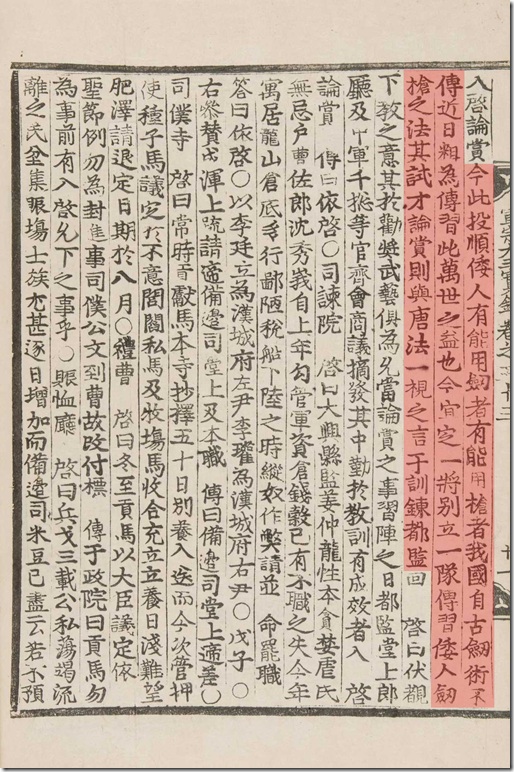 入啓論賞今此投順倭人有能用劒者有能用槍者我國自古劒術不
傳近日粗為傳習此萬世之益也今宜定一將別立一隊傳習倭人劒
槍之法其試才論賞則與唐法一視之言于訓鍊都監回 啓曰伏覩
下敎之意其於勸奬武藝俱為允當論賞之事習陣之日都監堂上郎
廳及中軍千摠等官齊會商議摘發其中勤於敎訓有成效者入 啓
論賞 傳曰依啓○司諫院 啓曰大興縣監姜仲龍性本貪婪虐民
無忌戶曹佐郎沈秀峩自上年勾管軍資倉錢穀已有不職之失今年
寓居龍山倉底多行鄙陋稅船下陸之時縱奴作弊請並 命罷職
答曰依啓○以李廷立為漢城府左尹李瓘為漢城府右尹○戊子○
右參贊成渾上疏請遞備邊司堂上及本職 傳曰備邊司堂上遞差○
司僕寺 啓曰常時首獻馬本寺抄擇五十日別養入送而今次管押
使種子馬議定於不意閭閻私馬及牧塲馬收合充立立養日淺難望
肥澤請退定日期於八月○禮曹 啓曰冬至貢馬以大臣議定依
聖節例勿為封進事司僕公文到曹故改付標 傳于政院曰貢馬勿
為事前有入啓允下之事乎○賑恤廳 啓曰兵戈三載公私蕩竭流
離之民坌集賑塲士族尤甚逐日增加而備邊司米豆已盡云若不預